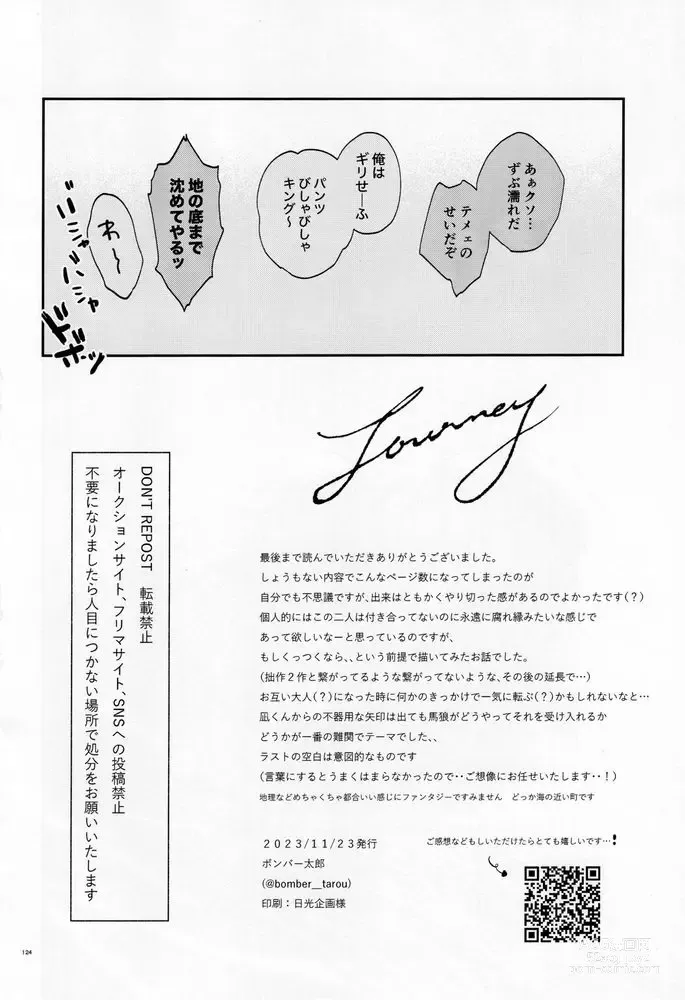 あぁクソ…
ずぶ濡れだ
テメェの
せいだぞ
俺は
ギリせーふ
パンツ
びしゃびしゃ
キング〜
地の底まで
沈めてやるッ
わ〜〜
バシャ
バシャ
ドボッ
Journey
最後まで読んでいただきありがとうございました。
しょうもない内容でこんなページ数になってしまったのが
自分でも不思議ですが、出来はともかくやり切った感があるのでよかったです(？)
個人的にはこの二人は付き合ってないのに永遠に腐れ縁みたいな感じで
あって欲しいなーと思っているのですが、
もしくっつくなら、、という前提で描いてみたお話でした。
(拙作２作と繋がってるような繋がってないような、その後の延長で…)
お互い大人(？)になった時に何かのきっかけで一気に転ぶ(？)かもしれないなと…
凪くんからの不器用な矢印は出ても馬狼がどうやってそれを受け入れるか
どうかが一番の難関でテーマでした、、
ラストの空白は意図的なものです
(言葉にするとうまくはまらなかったので‥ご想像にお任せいたします‥！)
地理などめちゃくちゃ都合いい感じにファンタジーですみません　どっか海の近い町です
DON'T REPOST　転載禁止
オークションサイト、フリマサイト、SNSへの投稿禁止
不要になりましたら人目につかない場所で処分をお願いいたします
２０２３/１１/２３発行
ボンバー太郎
(@bomber__tarou)
印刷：日光企画様
ご感想などもしいただけたらとても嬉しいです…！
124